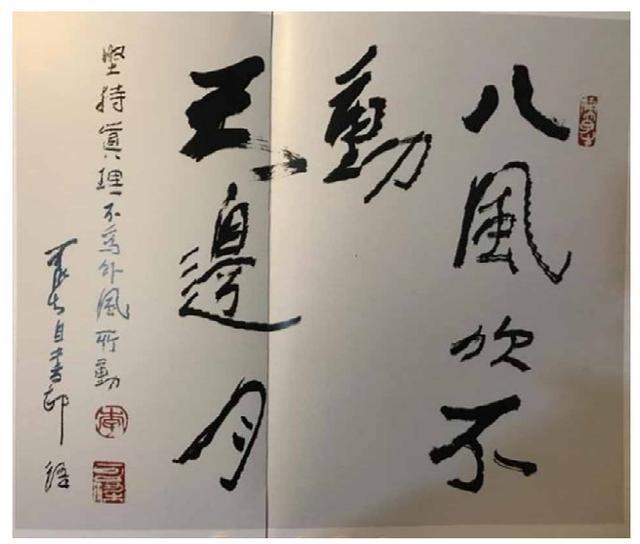 八風吹不
動
天邊月
堅持真理不為外風所動
自書
語